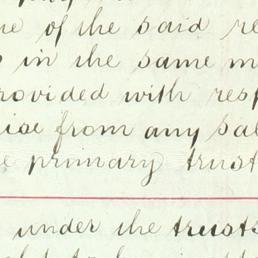 of the said re
in the same m
rovided with resp
from any sal
primary trust
under the trusts